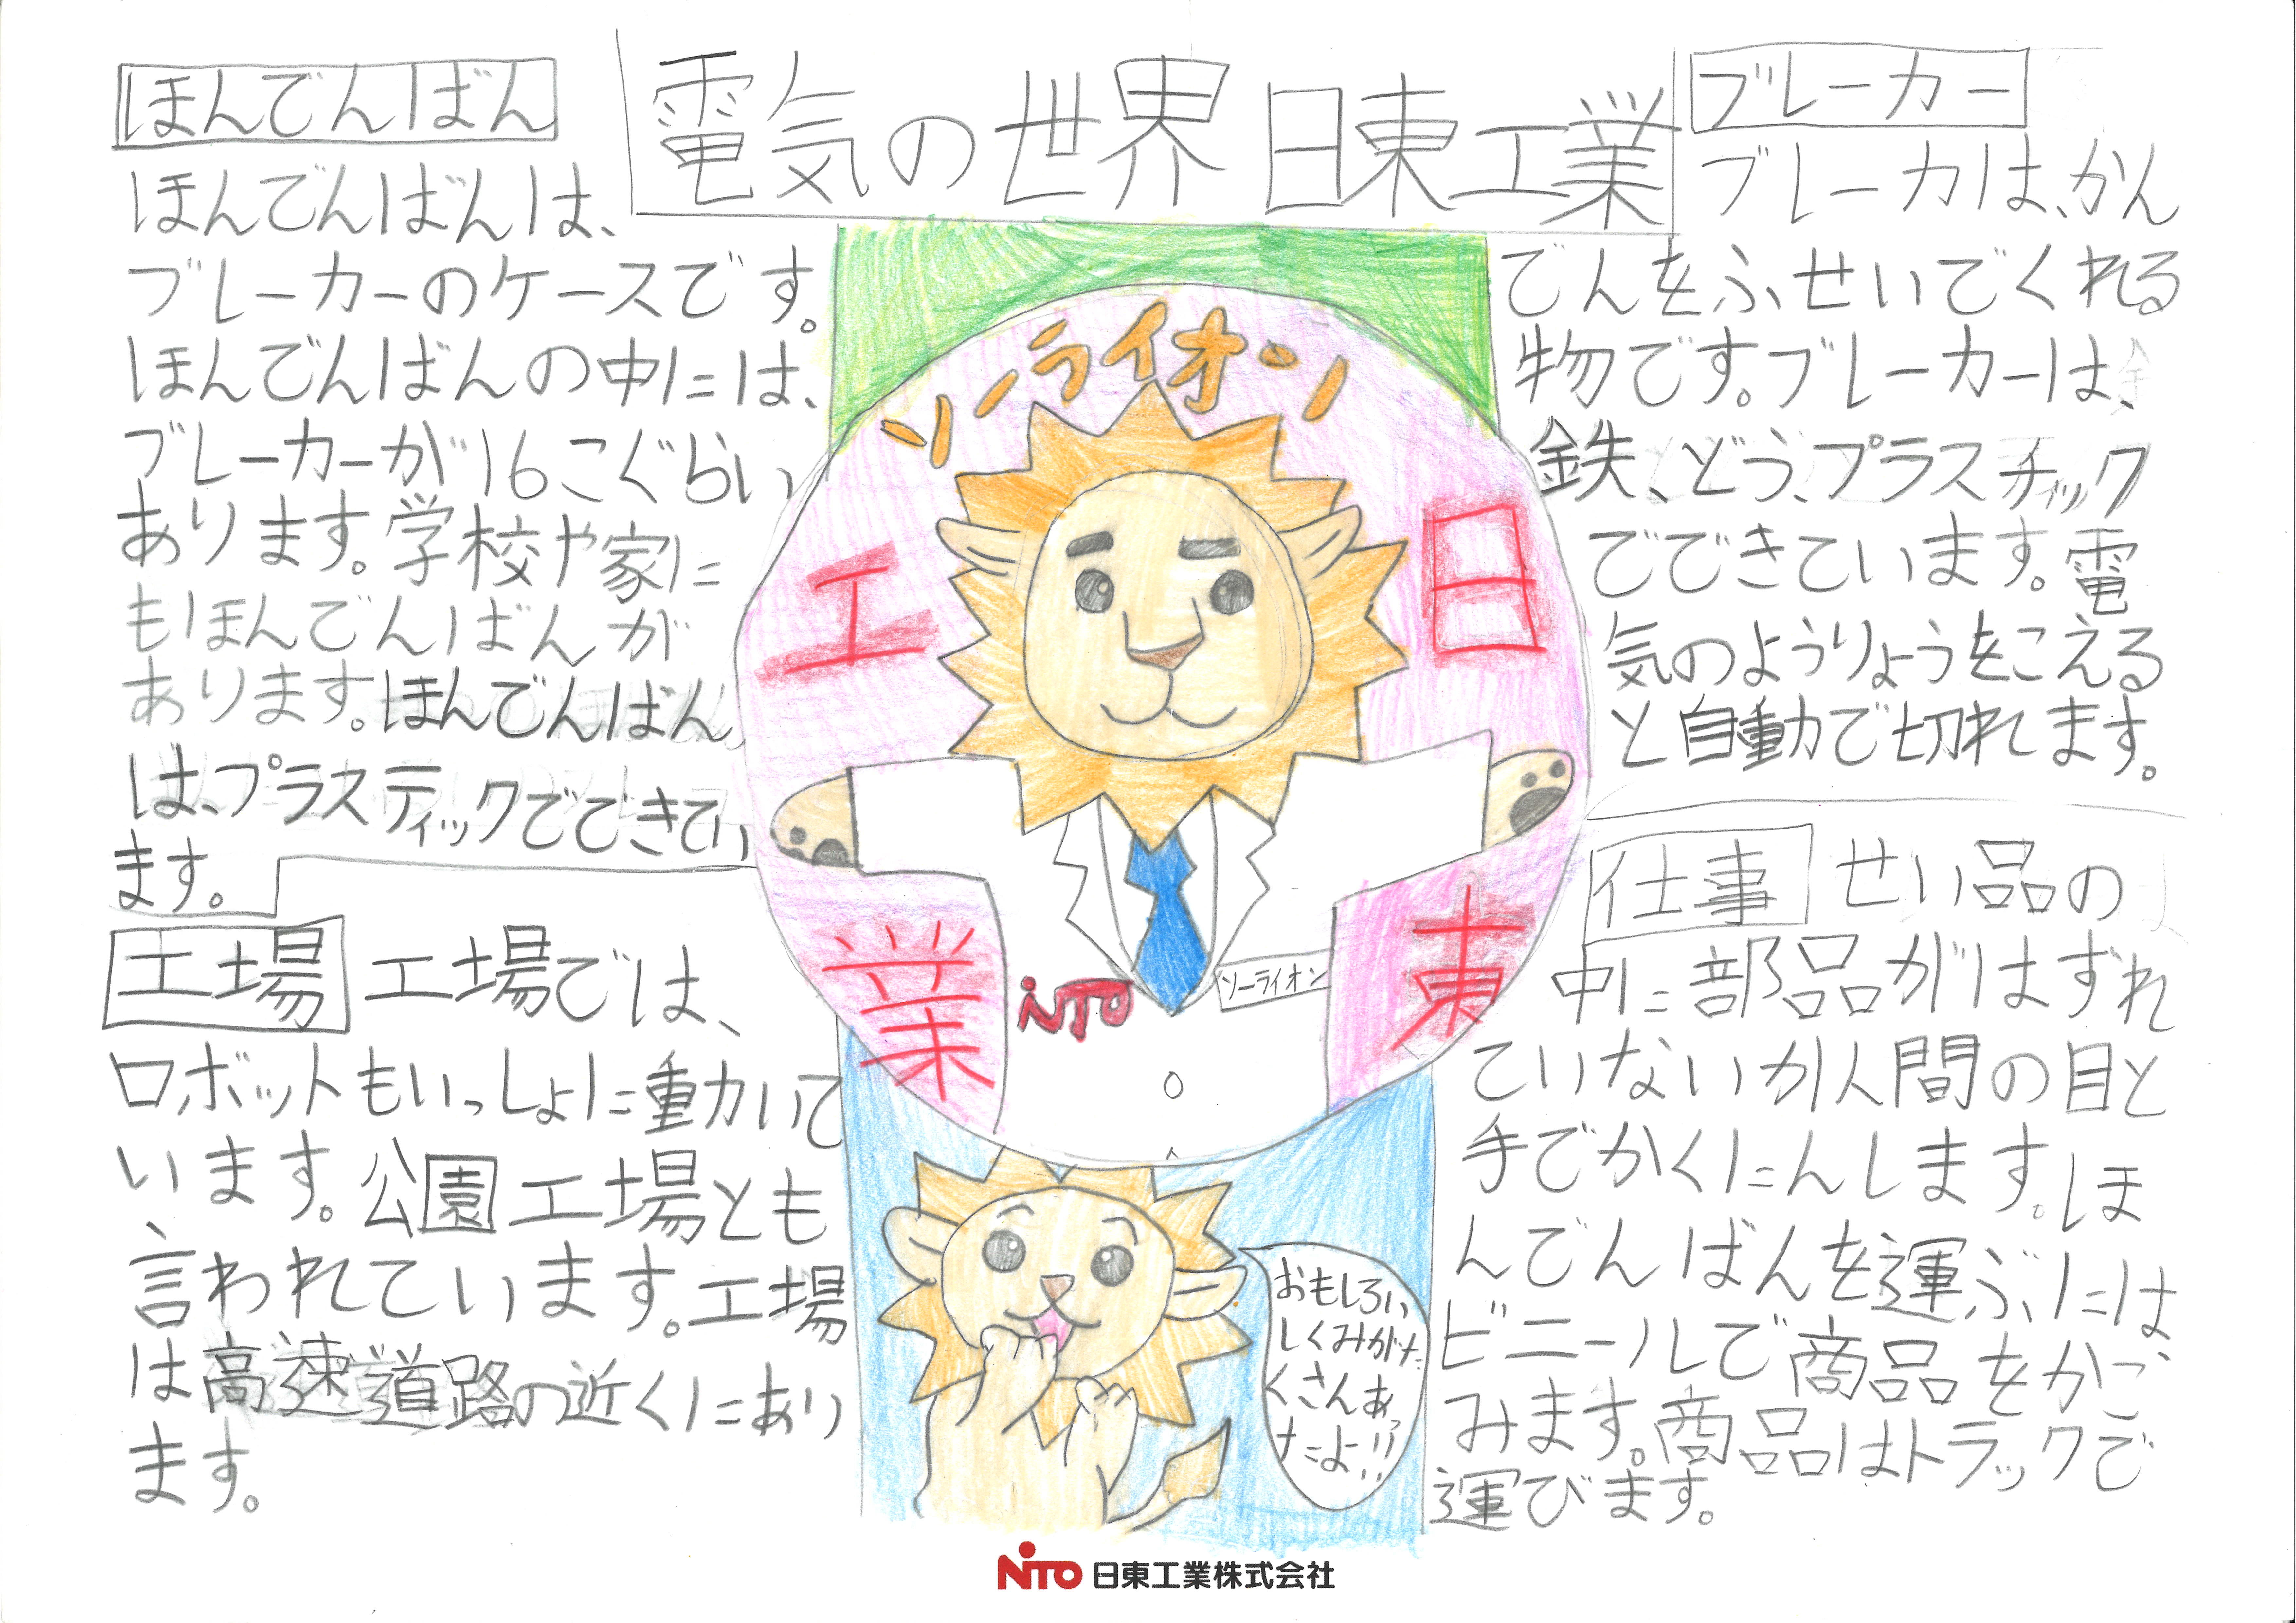 電気の世界 日東工業
ほんでんばん
ほんでんばんは、
ブレーカーのケースです。
ほんでんばんの中には、
ブレーカーが16こぐらい
あります。学校や家に
もほんでんばんが
あります。ほんでんばん
は、プラスティックでできてい
ます。
工場
工場では、
ロボットもいっしょに動いて
います。公園工場とも
言われています。工場
は高速道路の近くにあり
ます。
ソーライオン
日
東
工
業
NITO
ソーライオン
おもしろい
しくみがた
くさんあっ
たよ!!
ブレーカー
ブレーカは、かん
でんをふせいでくれる
物です。ブレーカーは、
鉄、どう、プラスチィック
でできています。電
気のようりょうをこえる
と自動で切れます。
仕事
せい品の
中に部品がはずれ
ていないか人間の目と
手でかくにんします。ほ
んでんばんを運ぶには、
ビニールで商品をかこ
みます。商品はトラックで
運びます。
NITO 日東工業株式会社